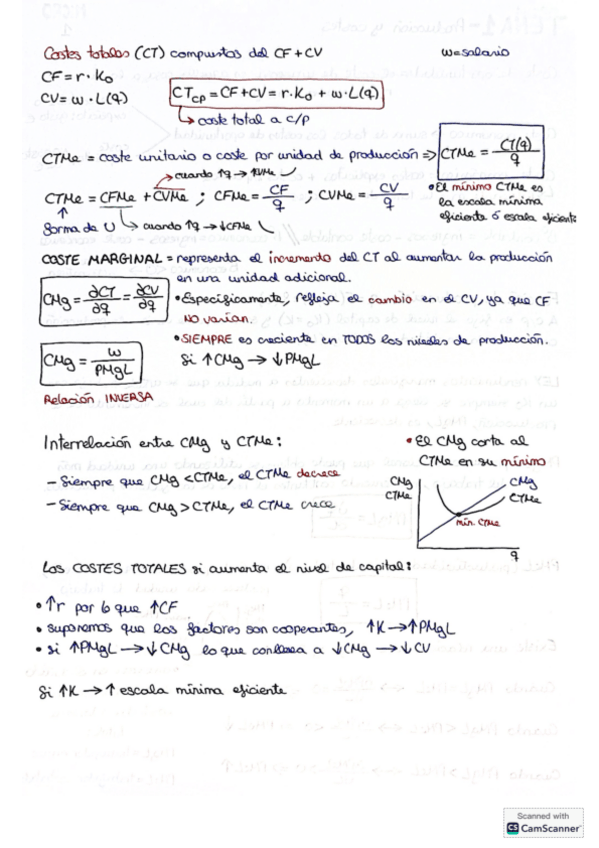 Costes totales (CT) compuestos del CF + CV
w = salario
CF = r · K₀
CV = w · L(q)
CTcp = CF + CV = r · K₀ + w · L(q)
↳ coste total a c/p
CTMe = coste unitario o coste por unidad de producción ⇒ CTMe = CT(q)/q
↗ cuando ↑q → ↑CVMe
CTMe = CFMe + CVMe ; CFMe = CF/q ; CVMe = CV/q
• El mínimo CTMe es
la escala mínima
eficiente ó escala eficiente
forma de U
↳ cuando ↑q → ↓CFMe
COSTE MARGINAL = representa el incremento del CT al aumentar la producción
en una unidad adicional.
CMg = ∂CT/∂q = ∂CV/∂q
• Específicamente, refleja el cambio en el CV, ya que CF
NO varían.
• SIEMPRE es creciente en TODOS los niveles de producción.
CMg = w/PMgL
Si ↑CMg → ↓PMgL
Relación INVERSA
Interrelación entre CMg y CTMe:
• El CMg corta al
CTMe en su mínimo
– Siempre que CMg < CTMe, el CTMe decrece
– Siempre que CMg > CTMe, el CTMe crece
CMg
CTMe
CMg
CTMe
mín. CTMe
q
Los COSTES TOTALES si aumenta el nivel de capital:
• ↑r por lo que ↑CF
• suponemos que los factores son cooperantes, ↑K → ↑PMgL
• si ↑PMgL → ↓CMg lo que conlleva a ↓CMg → ↓CV
Si ↑K → ↑ escala mínima eficiente
Scanned with
CS CamScanner